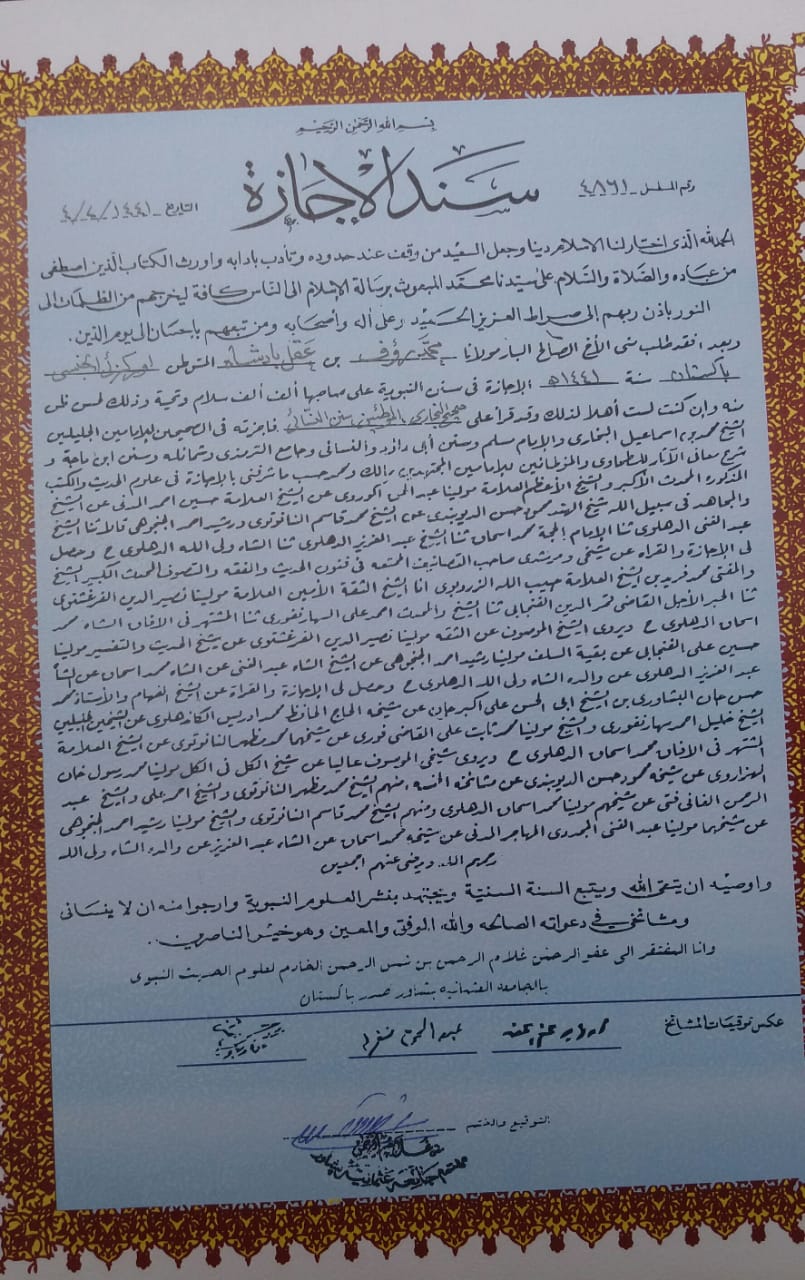 بسم الله الرحمن الرحيم
سند الإجازة
رقم المسلسل ٤٨٦١
التاريخ ١٤٤١/٤/٤
الحمد لله الذى اختار لنا الاسلام دينا وجعل السعيد من وقف عند حدوده وتأدب بادابه واورث الكتاب الذين اصطفى
من عباده والصلاة والسلام على سيدنا محمد المبعوث برسالة الإسلام الى الناس كافة ليخرجهم من الظلمات الى
النور باذن ربهم إلى صراط العزيز الحميد وعلى أله وأصحابه ومن تبعهم بإحسان إلى يوم الدين.
وبعد! فقد طلب منى الأخ الصالح البار مولانا محمد رؤف بن عقل بادشاه المتوطن اوركزئ ايجنسى
باكستان سنة ١٤٤١ھ الإجازة فى سنن النبوية على صاحبها ألف ألف سلام وتحية وذلك لحسن ظن
منه وإن كنت لست أهلا لذلك وقد قرأ على صحيح البخارى المؤطئين سنن النسائى فاجزته فى الصحيحين للإمامين الجليلين
الشيخ محمد بن اسماعيل البخارى والإمام مسلم وسنن أبى داود والنسائى وجامع الترمذى وشمائله وسنن ابن ماجة و
شرح معانى الآثار للطحاوى والمؤطائين للإمامين المجتهدين مالك ومحمد حسب ما شرفنى بالإجازة فى علوم الحديث والكتب
المذكورة المحدث الأكبر والشيخ الأعظم العلامة مولينا عبد الحق اكوروى عن الشيخ العلامة حسين احمد المدنى عن الشيخ
والمجاهد فى سبيل الله شيخ الهند محمود حسن الديوبندى عن الشيخ محمد قاسم النانوتوى ورشيد احمد الجنجوهى قالا ثنا الشيخ
عبد الغنى الدهلوى ثنا الإمام الحجة محمد اسحاق ثنا الشيخ عبد العزيز الدهلوى ثنا الشاه ولى الله الدهلوى ح وحصل
لى الإجازة والقراة عن شيخى ومرشدى صاحب التصانيف الممتعه فى فنون الحديث والفقه والتصوف المحدث الكبير الشيخ
والمفتى محمد فريد بن الشيخ العلامة حبيب الله الزروبوى انا الشيخ الثقة الأمين العلامة مولينا نصير الدين الغرغشتوى
ثنا الحبر الأجل القاضى قمر الدين الفنجابى ثنا الشيخ والمحدث احمد على السهارنفورى ثنا المشتهر فى الافاق الشاه محمد
اسحاق الدهلوى ح ويروى الشيخ الموصوف عن الثقه مولينا نصير الدين الغرغشتوى عن شيخ الحديث والتفسير مولينا
حسين على الفنجابى عن بقية السلف مولينا رشيد احمد الجنجوهى عن الشيخ الشاه عبد الغنى عن الشاه محمد اسحاق عن الشاه
عبد العزيز الدهلوى عن والده الشاه ولى الله الدهلوى ح وحصل لى الإجازة والقراة عن الشيخ الفهام والأستاذ محمد
حسن جان البشاورى بن الشيخ ابى الحسن على اكبر جان عن شيخه الحاج الحافظ محمد ادريس الكاندهلوى عن الشيخين الجليلين
الشيخ خليل احمد سهارنفورى والشيخ مولينا محمد ثابت على القاضى فورى عن شيخهما محمد مظهر النانوتوى عن الشيخ العلامة
المشتهر فى الافاق محمد اسحاق الدهلوى ح ويروى شيخى الموسوف عاليا عن شيخ الكل فى الكل مولينا محمد رسول خان
الهزاروى عن شيخه محمود حسن الديوبندى عن مشائخه الخمسه، منهم الشيخ محمد مظهر النانوتوى والشيخ احمد على والشيخ عبد
الرحمن الفانى فتى عن شيخهم مولينا محمد اسحاق الدهلوى ومنهم الشيخ محمد قاسم النانوتوى والشيخ مولينا رشيد احمد الجنجوهى
عن شيخهما مولينا عبد الغنى المجددى المهاجر المدنى عن شيخه محمد اسحاق عن الشاه عبد العزيز عن والده الشاه ولى الله
رحمهم الله ورضى عنهم اجمعين
واوصيه ان يتقى الله ويتبع السنة السنية ويجتهد بنشر العلوم النبوية وارجوا منه ان لا ينسانى
ومشائخى في دعواته الصالحه والله الموفق والمعين وهو خير الناصرين.
وانا المفتقر الى عفو الرحمن غلام الرحمن بن شمس الرحمن الخادم لعلوم الحديث النبوى
بالجامعه العثمانيه بشاور صدر باكستان
عكس توقيعات المشائخ
التوقيع والختم